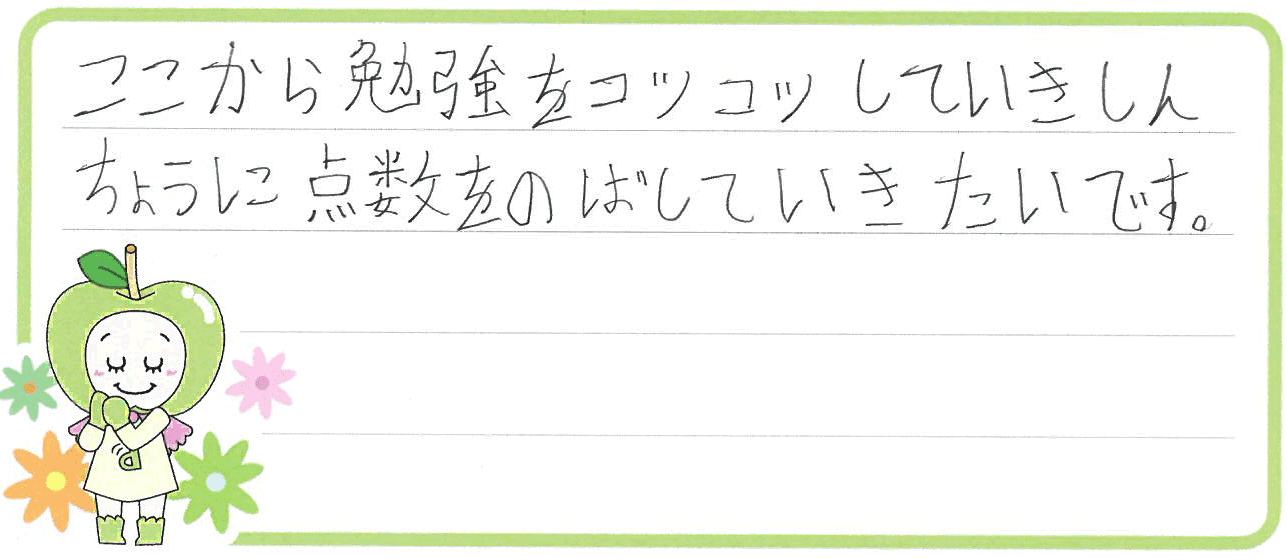 ここから勉強をコツコツしていきしん
ちょうに点数をのばしていきたいです。